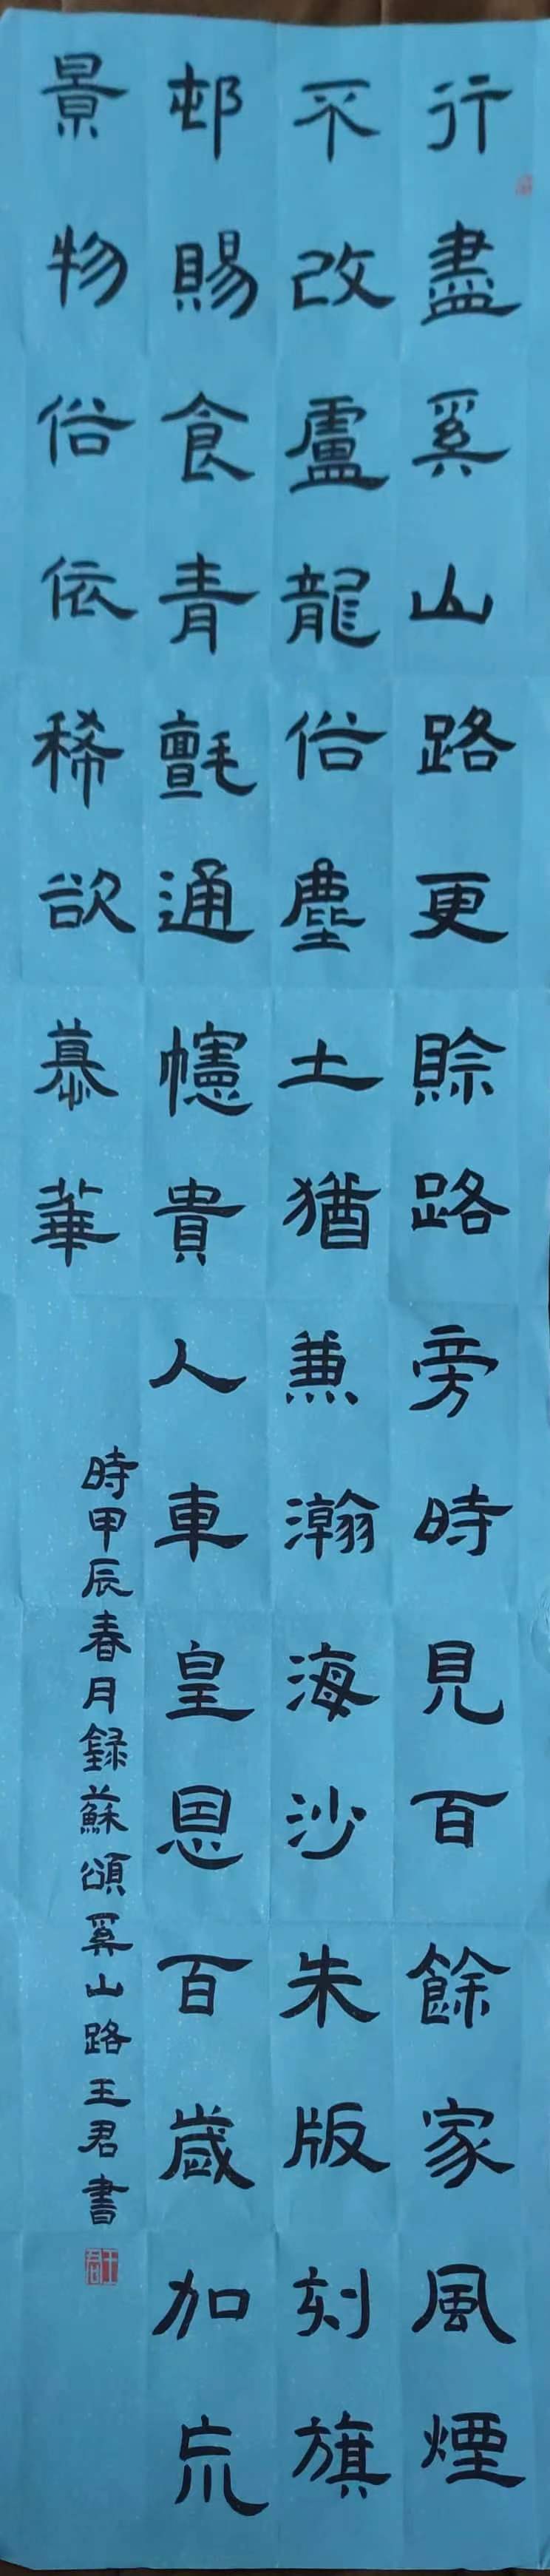 行盡奚山路更賒路旁時見百餘家風煙
不改盧龍俗塵土猶兼瀚海沙朱版刻旗
邨賜食青氈通幰貴人車皇恩百歲加巟
景物俗依稀欲慕華
時甲辰春月録蘇頌奚山路王君書
王君